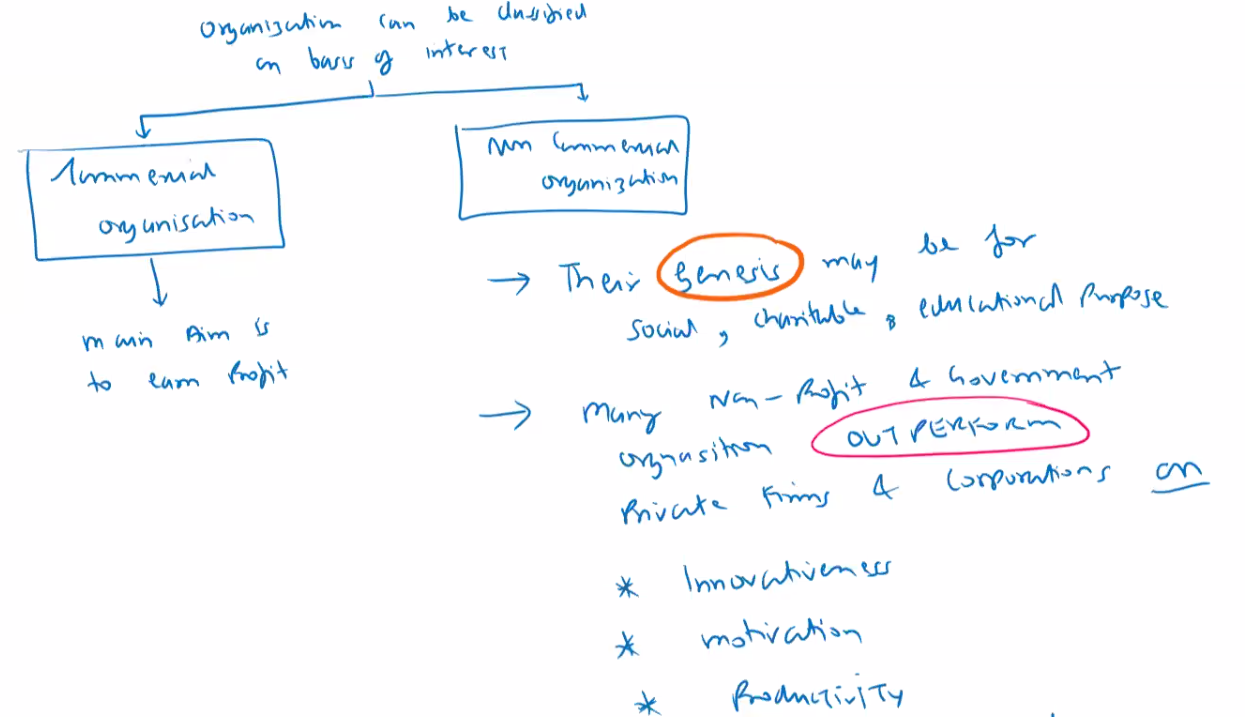 Organization can be classified
on basis of interest
Commercial
organisation
main Aim is
to earn Profit
Non Commercial
organization
→ Their Genesis may be for
social, charitable & educational Purpose
→ Many Non-Profit & Government
orgnasition OUTPERFORM
Private Firms & Corporations on
* Innovativeness
* motivation
* Productivity